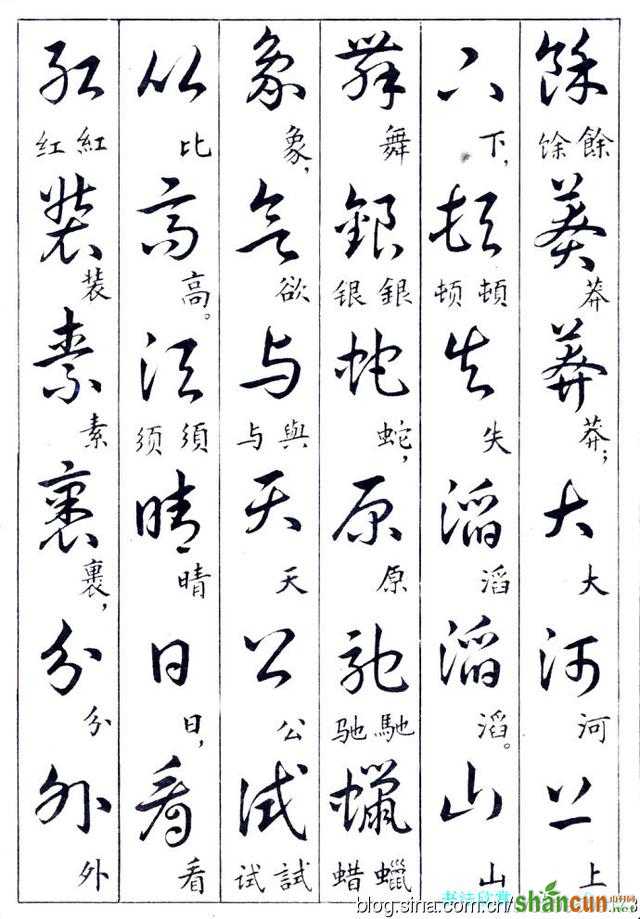 餘 馀 餘 莽 莽 莽 莽； 大 大 河 河 上 上
下 下， 頓 顿 頓 失 失 滔 滔 滔 滔。 山 山
舞 舞 銀 银 銀 蛇 蛇， 原 原 馳 驰 馳 蠟 蜡 蠟
象 象， 欲 欲 与 与 與 天 天 公 公 試 试 試
比 比 高 高。 須 须 須 晴 晴 日 日， 看 看
紅 红 紅 装 装 素 素 裹 裹， 分 分 外 外
书法欣赏
blog.sina.com.cn/
shancun
.net